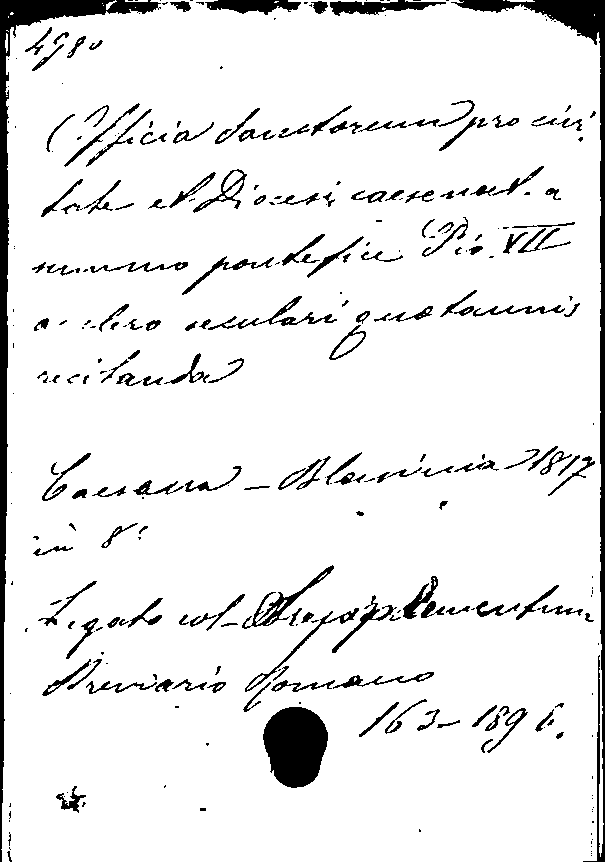 4980
Officia Sanctorum pro civi
tate et Diocesi caesenat. a
summo pontefice Pio VII
a clero seculari quotannis
recitanda
Caesena – Blasinia 1817
in 8°
Legato col
Breviario Romano
163–1896.